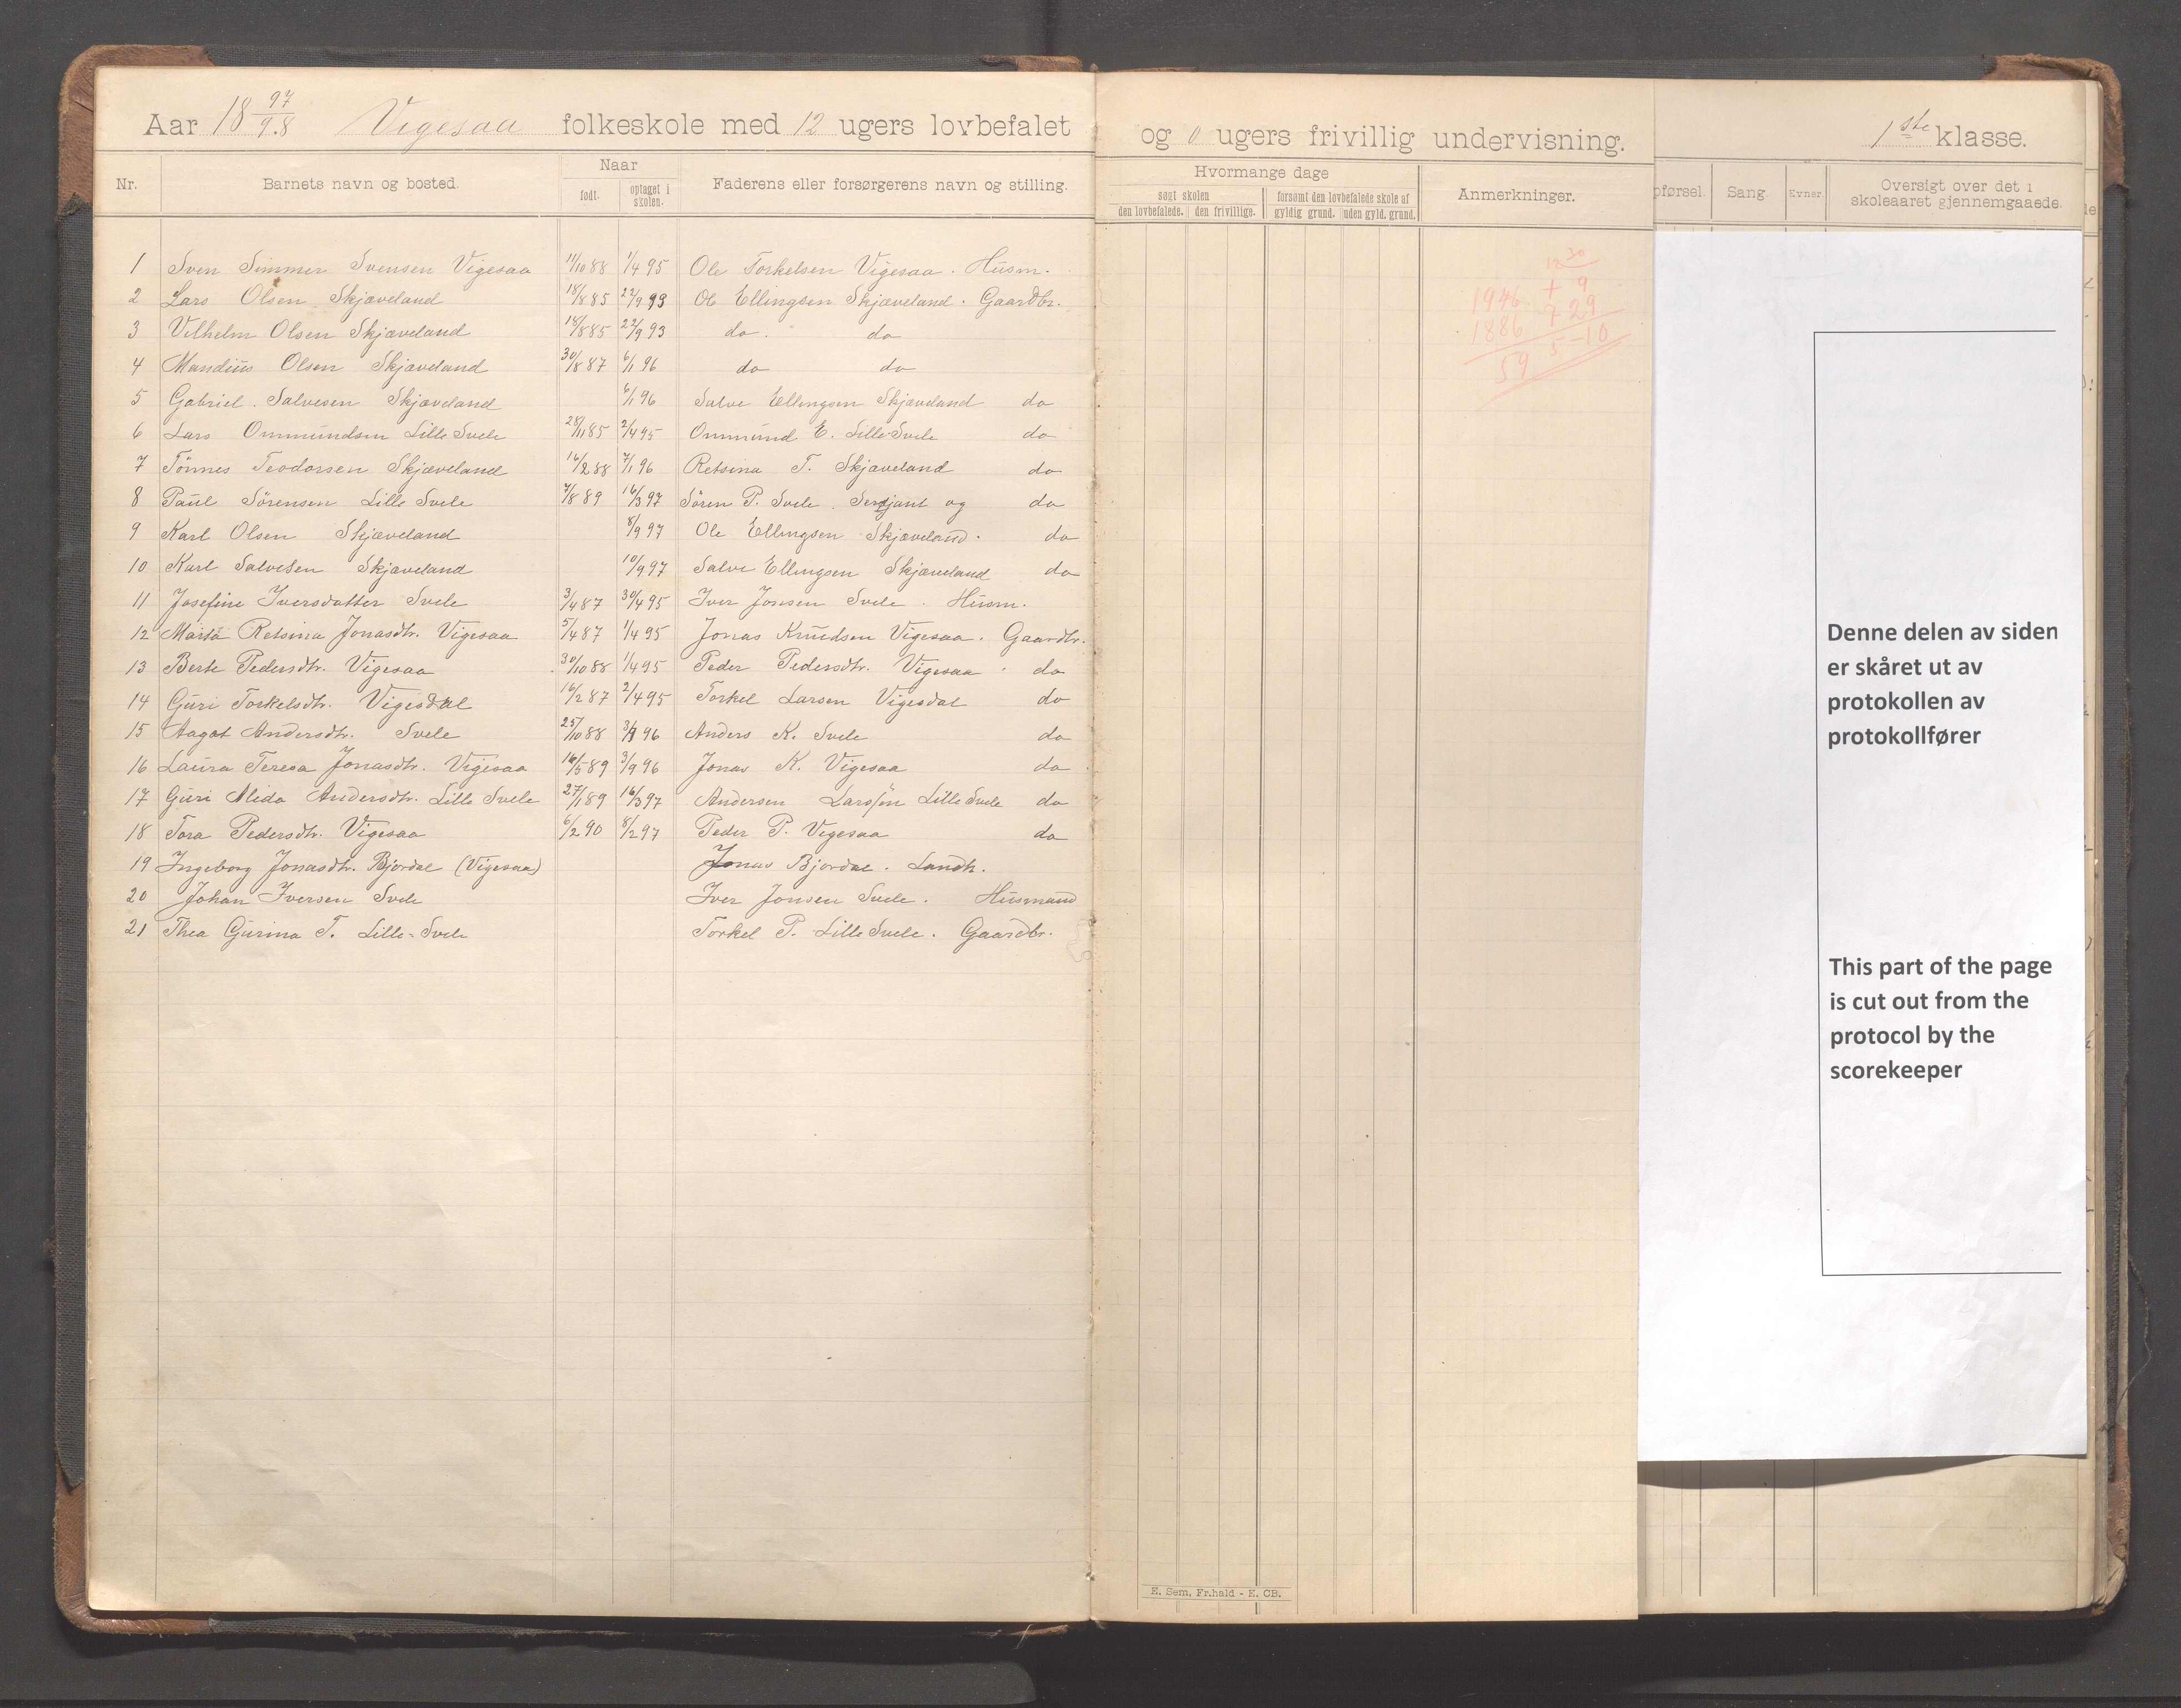 Aar 18 97/98 Vigesaa folkeskole med 12 ugers lovbefalet og 0 ugers frivillig undervisning. 1ste klasse.
Nr. Barnets navn og bosted. Naar født. optaget i skolen. Faderens eller forsørgerens navn og stilling. Hvormange dage søgt skolen den lovbefalede. den frivillige. forsømt den lovbefalede skole af gyldig grund. uden gyld. grund. Anmerkninger. pførsel. Sang. Evner. Oversigt over det i skoleaaret gjennemgaaede.
1 Sven Simmer Svensen Vigesaa 11/10 88 1/4 95 Ole Torkelsen Vigesaa. Husm.
2 Lars Olsen Skjæveland 18/8 85 22/9 93 Ol Ellingsen Skjæveland. Gaardbr.
3 Vilhelm Olsen Skjæveland 18/8 85 22/9 93 do. do
4 Mandius Olsen Skjæveland 30/8 87 6/1 96 do do
5 Gabriel Salvesen Skjæveland 6/1 96 Salve Ellingsen Skjæveland do
6 Lars Ommundsen Lille Svele 28/11 85 2/4 95 Ommund E. Lille Svele do
7 Tönnes Teodorsen Skjæveland 16/2 88 7/1 96 Retsina T. Skjæveland do
8 Paul Sörensen Lille Svele 7/8 89 16/3 97 Sören P. Svele. Sersjant og do
9 Karl Olsen Skjæveland 8/9 97 Ole Ellingsen Skjæveland. do
10 Karl Salvesen Skjæveland 10/9 97 Salve Ellingsen Skjæveland do
11 Josefine Iversdatter Svele 3/4 87 30/4 95 Iver Jonsen Svele. Husm.
12 Marta Retsina Jonasdtr. Vigesaa 5/4 87 1/4 95 Jonas Knudsen Vigesaa. Gaardbr.
13 Berte Pedersdtr. Vigesaa 30/10 88 1/4 95 Peder Pedersdtr. Vigesaa do
14 Guri Torkelsdtr. Vigesdal 16/2 87 2/4 95 Torkel Larsen Vigesdal do
15 Aagot Andersdtr. Svele 25/10 88 96 Anders K. Svele do
16 Laura Teresa Jonasdtr. Vigesaa 16/5 89 3/9 96 Jonas K. Vigesaa do
17 Guri Alida Andersdtr. Lille Svele 27/1 89 16/3 97 Andersen Larssön Lille Svele do
18 Tora Pedersdtr. Vigesaa 6/2 90 8/2 97 Peder P. Vigesaa do
19 Ingeborg Jonasdtr. Bjordal (Vigesaa) Jonas Bjordal. Landh.
20 Johan Iversen Svele Iver Jonsen Svele. Husmand
21 Thea Gurina T. Lille-Svele Torkel P. Lille Svele. Gaardbr.
30
18
1946 + 9
1886 7 29
59 5-10
Denne delen av siden
er skåret ut av
protokollen av
protokollfører
This part of the page
is cut out from the
protocol by the
scorekeeper
E. Sem, Fr.hald - E. CB.